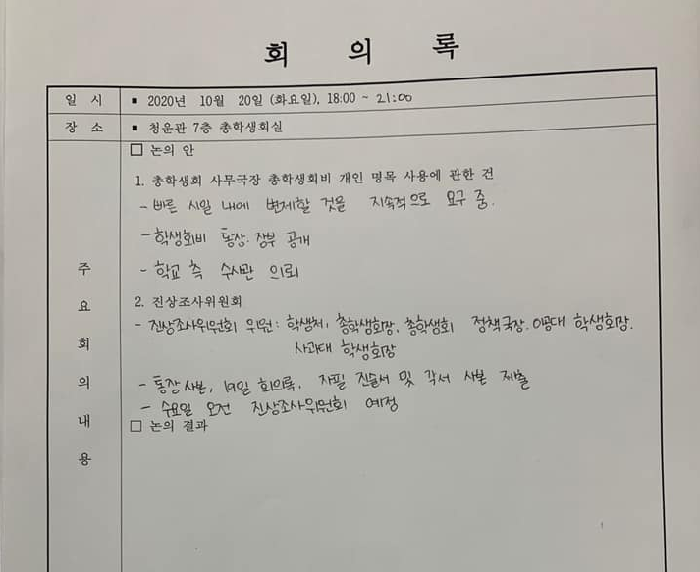 회 의 록
일 시 ▪ 2020년 10월 20일 (화요일), 18:00 ~ 21:00
장 소 ▪ 청운관 7층 총학생회실
주요회의내용
□ 논의 안
1. 총학생회 사무국장 총학생회비 개인 명목 사용에 관한 건
- 빠른 시일 내에 변제할 것을 지속적으로 요구 중.
- 학생회비 통장·장부 공개
- 학교 측 수사관 의뢰
2. 진상조사위원회
- 진상조사위원회 위원 : 학생처, 총학생회장, 총학생회 정책국장, 이공대 학생회장,
사과대 학생회장
- 통장사본, 19일 회의록, 자필 진술서 및 각서 사본 제출
- 수요일 오전 진상조사위원회 예정
□ 논의 결과